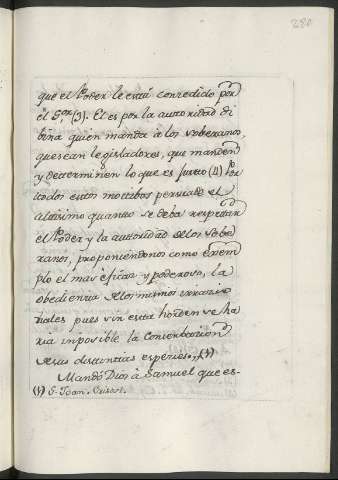 280
que el Poder le está concedido por
el S.or (3). El es por la autoridad di
bina quien manda á los soberanos,
que sean legisladores, que manden
y determinen lo que es justo (4) Por
todos estos motibos persuade el
altisimo quanto se deba respetar
el Poder y la autoridad de los sobe
ranos, proponiendonos como exem
plo el mas eficaz y poderoso, la
obediencia de los mismos irracio
nales pues sin esta horden se ha
ria imposible la Conserbacion
de sus distintas especies. (4)
Mandó Dios á Samuel que es-
(4) S. Joan. Crisost.